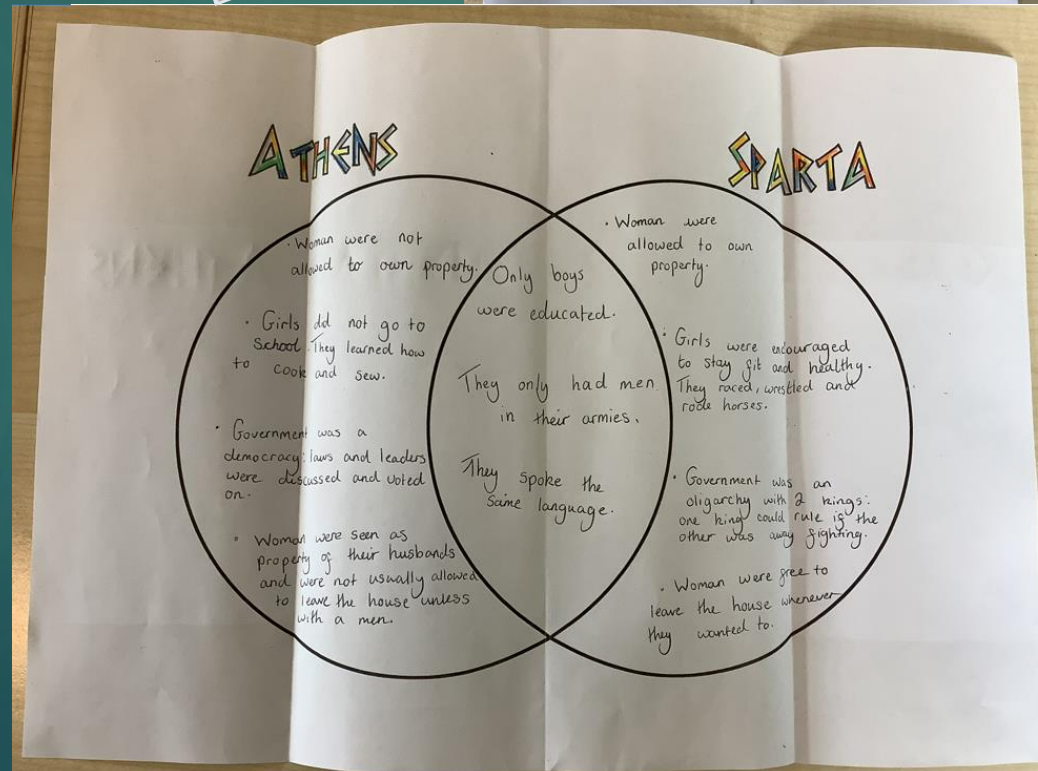 ATHENS
SPARTA
· Woman were not
allowed to own property.
· Girls did not go to
School. They learned how
to cook and sew.
· Government was a
democracy: laws and leaders
were discussed and voted
on.
· Woman were seen as
property of their husbands
and were not usually allowed
to leave the house unless
with a men.
Only boys
were educated.
They only had men
in their armies.
They spoke the
same language.
· Woman were
allowed to own
property.
· Girls were encouraged
to stay fit and healthy.
They raced, wrestled and
rode horses.
· Government was an
oligarchy with 2 kings:
one king could rule if the
other was away fighting.
· Woman were free to
leave the house whenever
they wanted to.